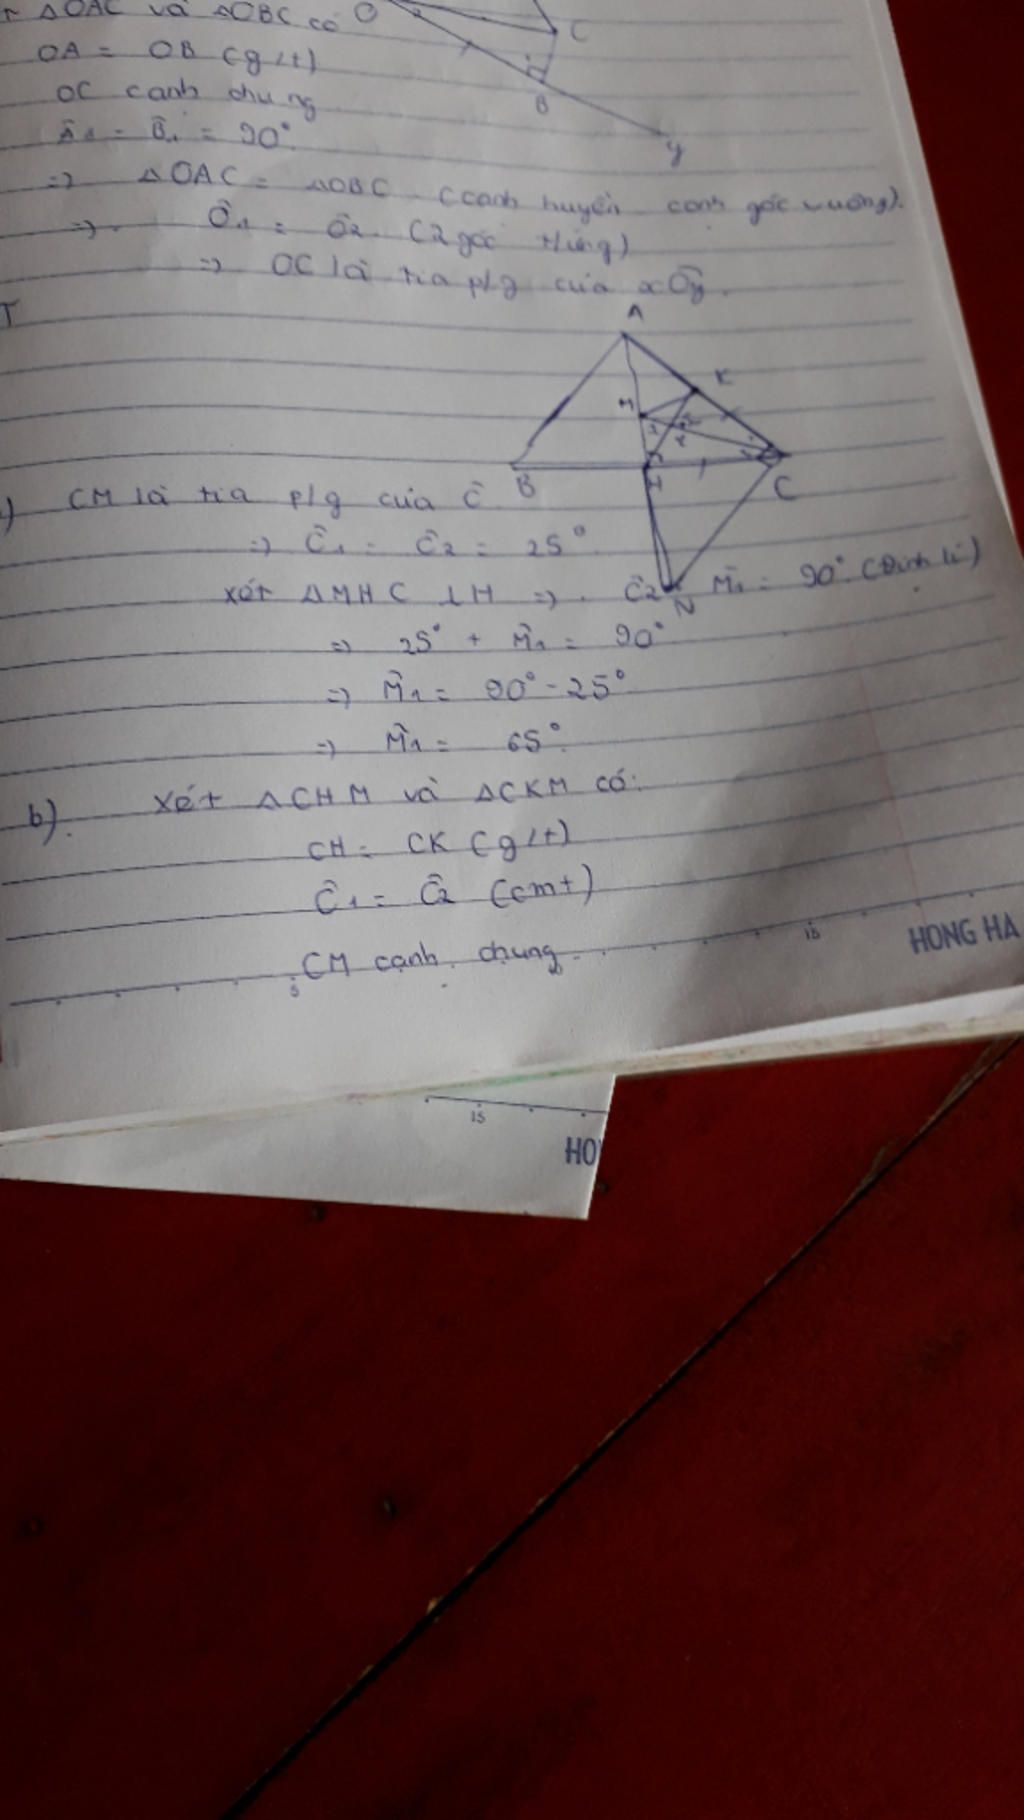 △OAC và △OBC có
OA = OB (g/t)
OC cạnh chung
Â1 = B̂1 = 90°
=> △OAC = △OBC (cạnh huyền cạnh góc vuông).
=> Ô1 = Ô2 (2 góc t/ứng)
=> OC là tia p/g của xÔy.
O
C
B
y
A
K
M
B
H
C
N
) CM là tia p/g của Ĉ
=> Ĉ1 = Ĉ2 = 25°
xét △MHC ⊥ H => Ĉ2 M̂1 = 90° (Định lí)
=> 25° + M̂1 = 90°
=> M̂1 = 90° - 25°
=> M̂1 = 65°
b). Xét △CHM và △CKM có:
CH = CK (g/t)
Ĉ1 = Ĉ2 (cmt)
CM cạnh chung.
5
15
HONG HA
15
HO